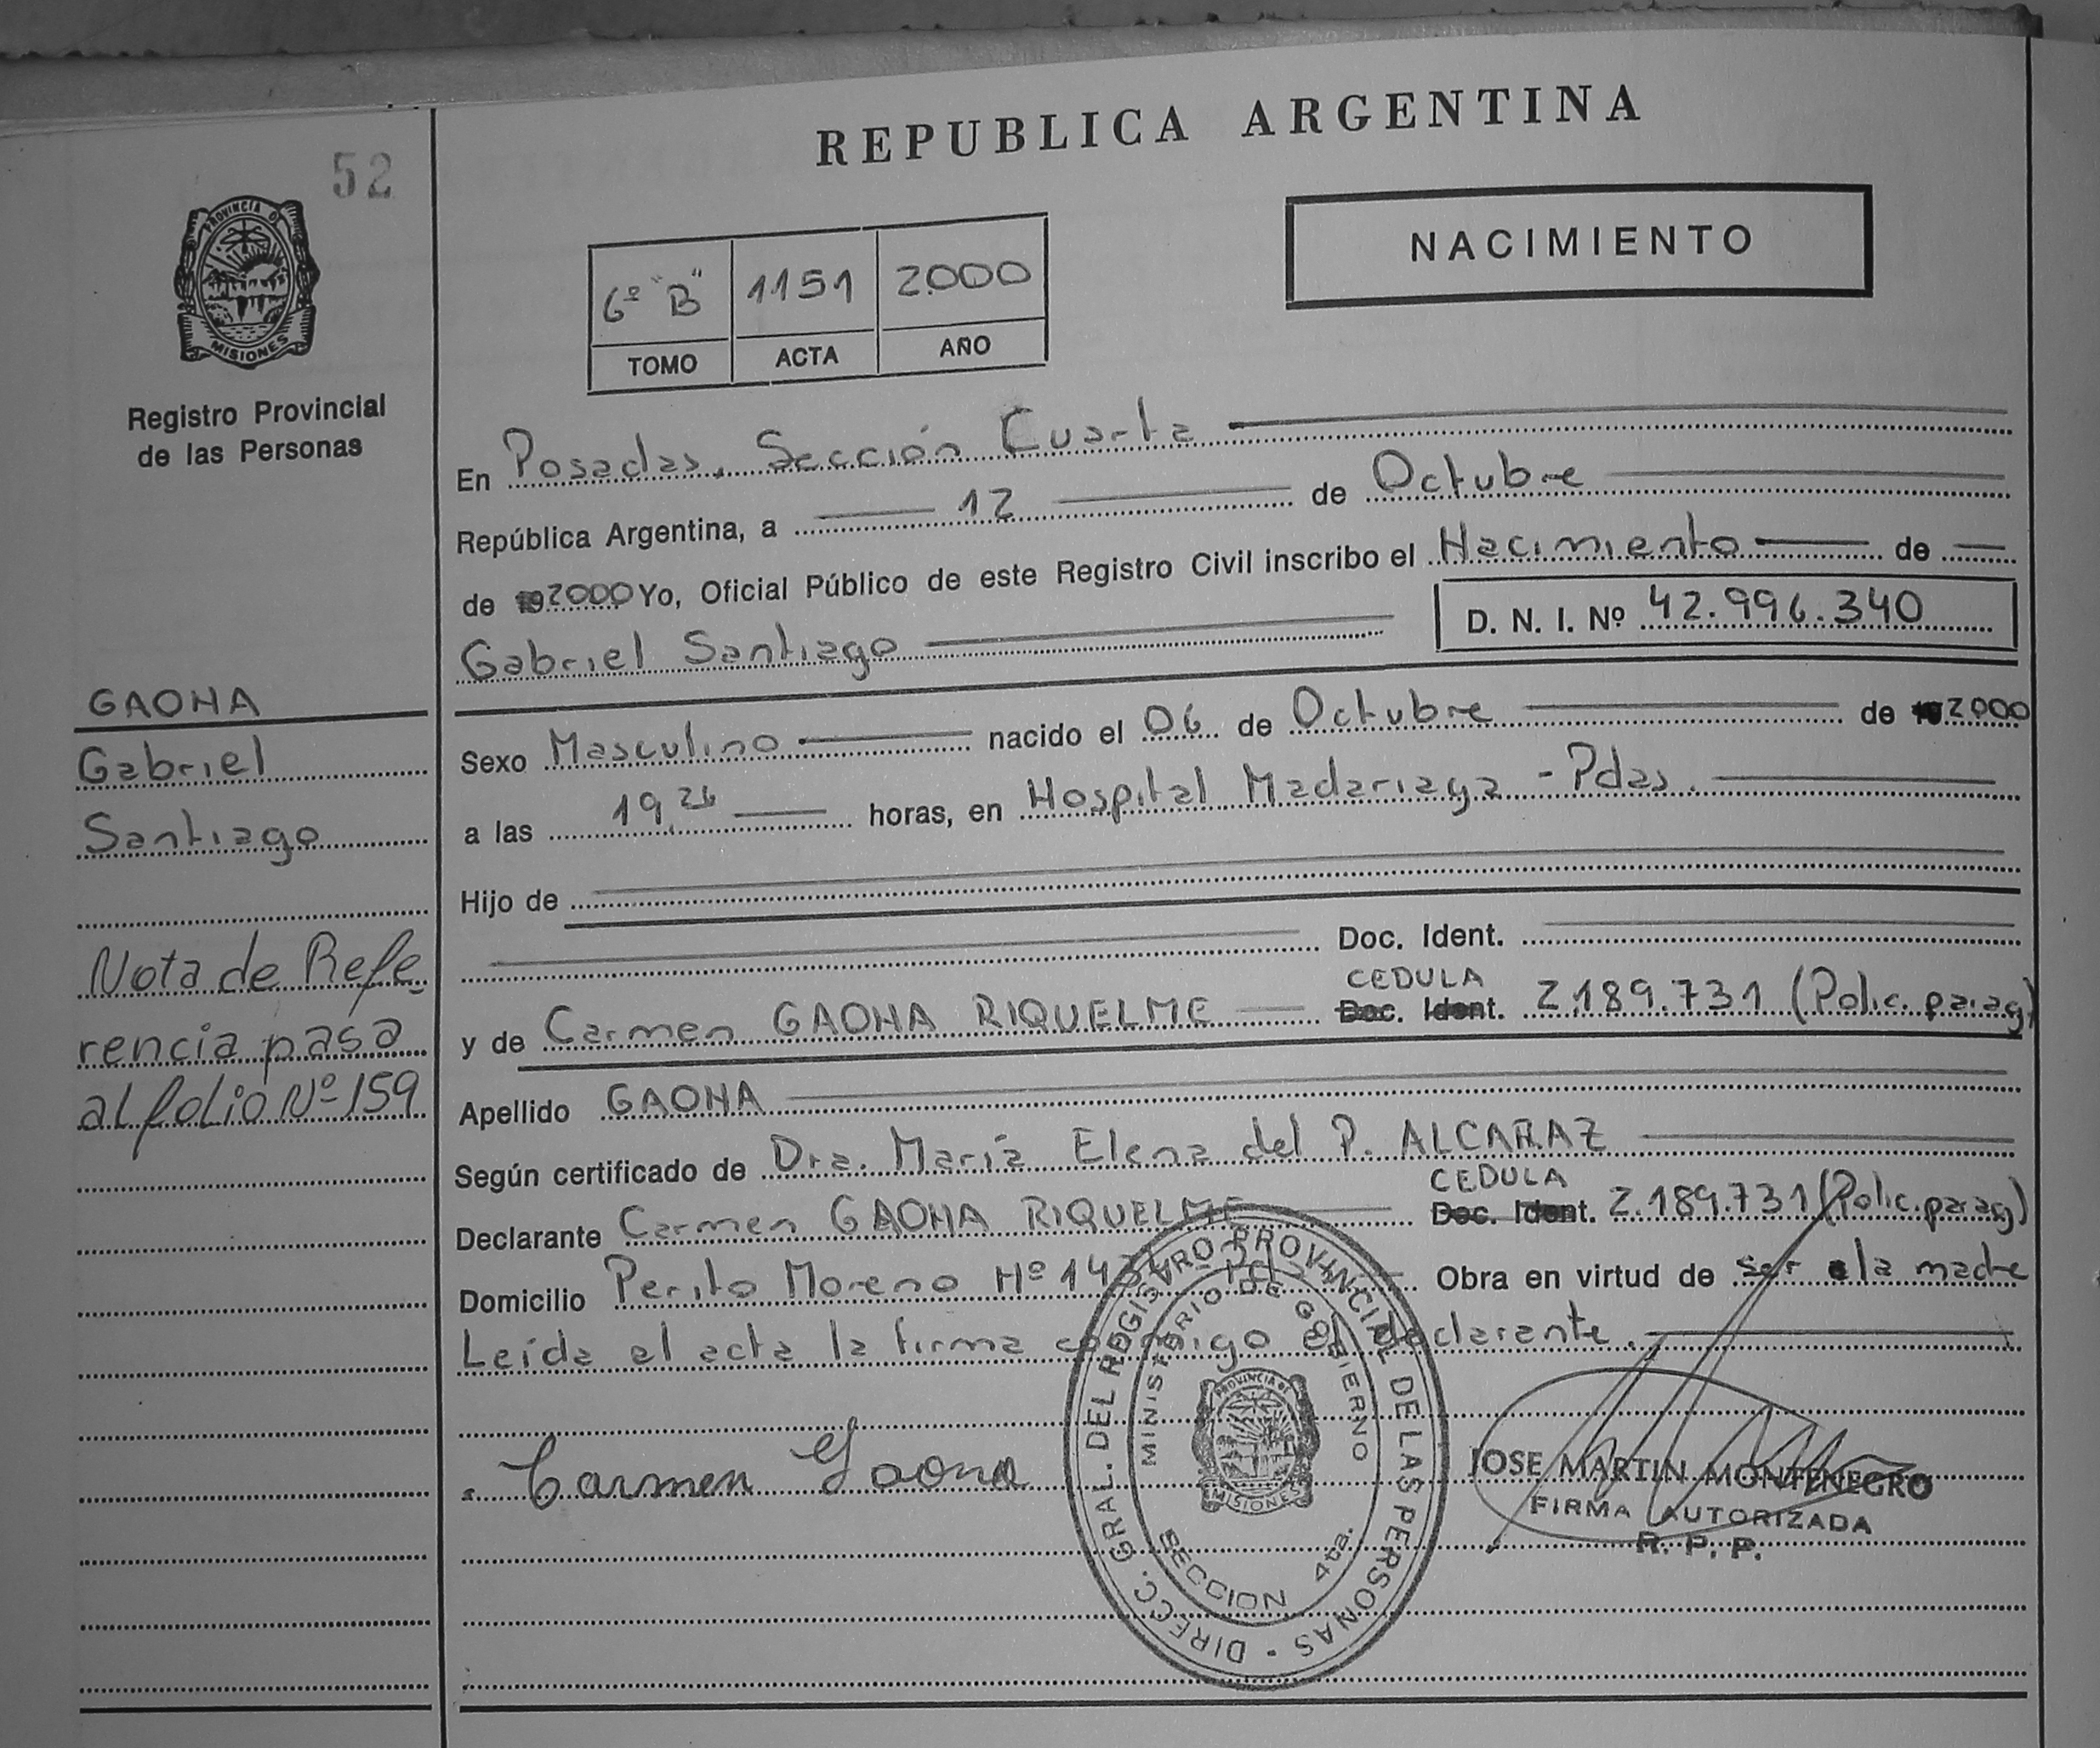 REPUBLICA ARGENTINA
52
PROVINCIA DE
MISIONES
Registro Provincial
de las Personas
NACIMIENTO
6º "B" 1151 2000
TOMO ACTA AÑO
En Posadas, Sección Cuarta
República Argentina, a 12 de Octubre
de 2000 Yo, Oficial Público de este Registro Civil inscribo el Nacimiento de
D. N. I. Nº 42.996.340
Gabriel Santiago
GAONA
Gabriel
Santiago
Nota de Refe
rencia pasa
al folio Nº 159
Sexo Masculino nacido el 06 de Octubre de 2000
a las 19,26 horas, en Hospital Madariaga - Pdas.
Hijo de
Doc. Ident.
CEDULA
y de Carmen GAONA RIQUELME Doc. Ident. 2.189.731 (Polic. parag)
Apellido GAONA
Según certificado de Dra. María Elena del P. ALCARAZ
CEDULA
Declarante Carmen GAONA RIQUELME Doc. Ident. 2.189.731 (Polic. parag)
Domicilio Perito Moreno Nº Obra en virtud de ser la madre
Leída el acta la firma conmigo declarante.
Carmen Gaona
DIRECC. GRAL. DEL REGISTRO PROVINCIAL DE LAS PERSONAS -
MINISTERIO DE GOBIERNO
PROVINCIA DE
MISIONES
SECCION 4ta.
JOSE MARTIN MONTENEGRO
FIRMA AUTORIZADA
R. P. P.